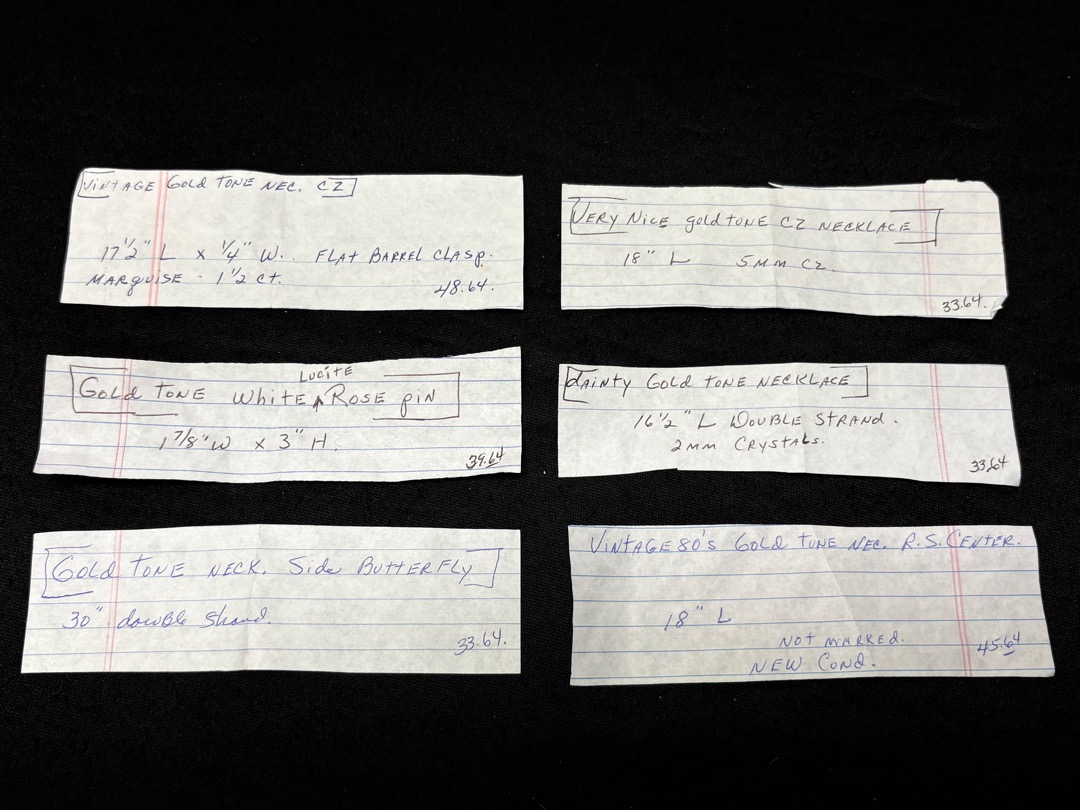 VINTAGE GOLD TONE NEC. CZ
17 1/2" L x 1/4" W. FLAT BARREL CLASP.
MARQUISE - 1 1/2 CT.
48.64.
VERY NICE gold tone CZ NECKLACE
18" L 5MM CZ.
33.64.
GOLD TONE White LUCITE ROSE PIN
1 7/8" W x 3" H.
39.64
dainty GOLD TONE NECKLACE
16 1/2" L DOUBLE STRAND.
2MM CRYSTALS.
33.64
GOLD TONE NECK. Side BUTTERFLY
30" double Strand.
33.64.
VINTAGE 80'S GOLD TONE NEC. R.S. CENTER.
18" L
NOT MARKED.
45.64
NEW COND.